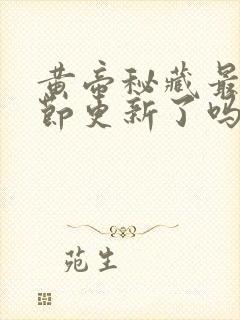 黄帝秘藏最
节更新了吗
苑生